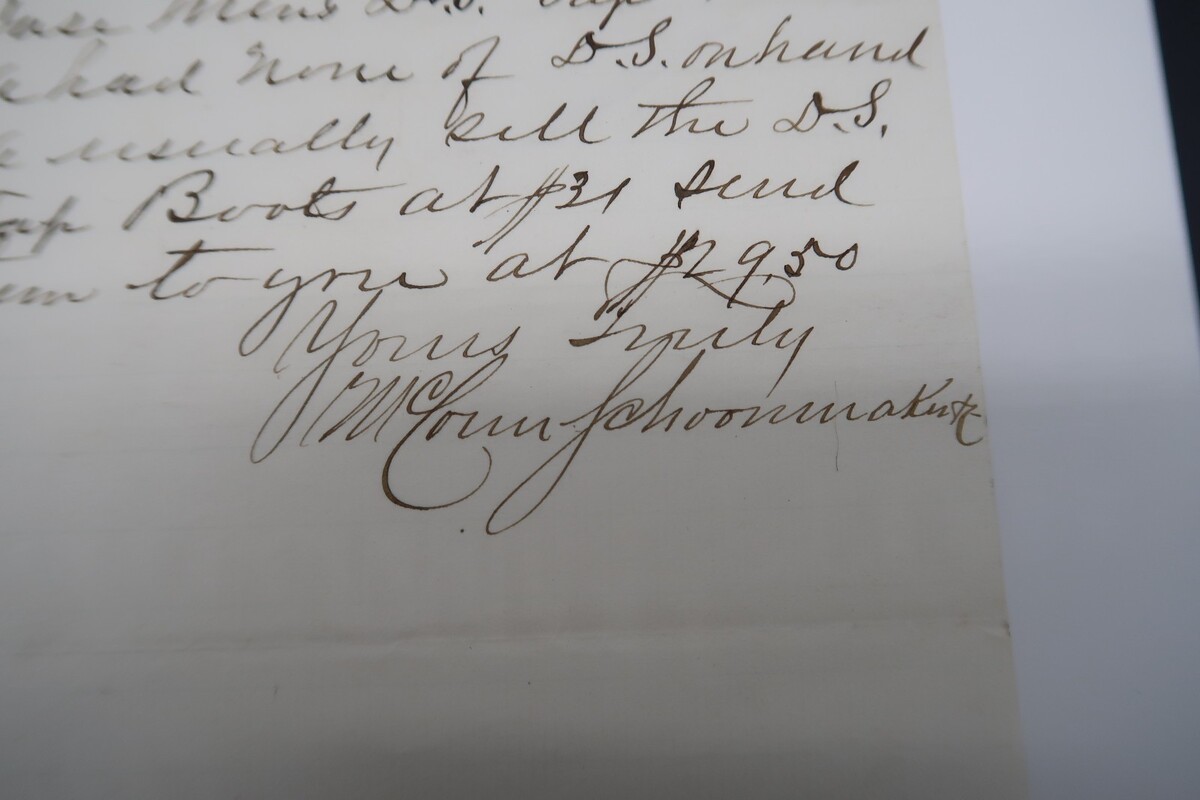 Mens D.S.
had none of D.S. on hand
usually sell the D.S.
Tap Boots at $31 send
to you at $29.50
Yours Truly
McComn Schoonmaker &c